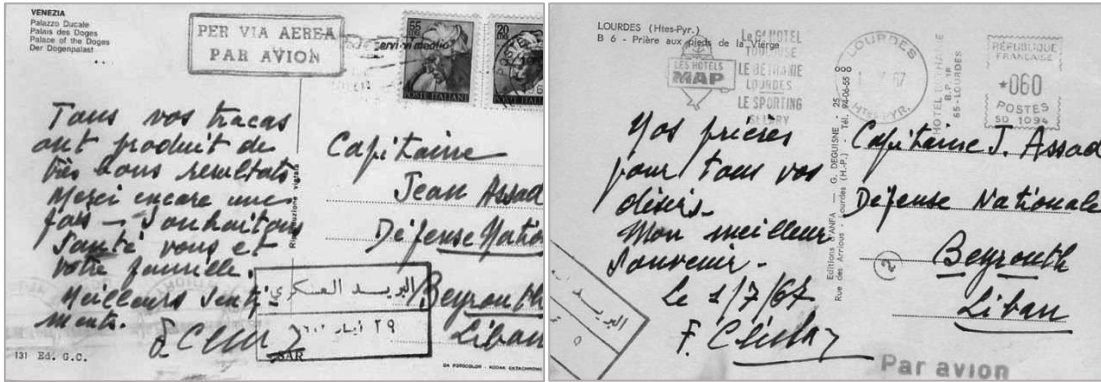 VENEZIA
Palazzo Ducale
Palais des Doges
Palace of the Doges
Der Dogenpalast
PER VIA AEREA
PAR AVION
POSTE ITALIANE
Tous vos tracas
ont produit de
très bons resultats
Merci encore une
fois — Souhaitons
Santé vous et
votre famille.
Meilleurs Senti-
ments.
Capitaine
Jean Assad
Défense Natio
Beyrouth
Liban
Riproduzione vietata
البريد العسكري
٢٩ أيار
SAR
131 Ed. G.C.
LOURDES (Htes-Pyr.)
B 6 - Prière aux pieds de la Vierge
LES HOTELS
MAP
LE BETHANIE
LOURDES
LE SPORTING
LOURDES
HTES-PYR.
HOTEL
B.P.
65 - LOURDES
RÉPUBLIQUE
FRANÇAISE
*060
POSTES
SD 1094
Nos prières
pour tous vos
désirs.
Mon meilleur
Souvenir.
Le 1/7/67
Capitaine J. Assad
Défense Nationale
Beyrouth
Liban
2
Editions D'ANFA — G. DEGUISNE - 25
Rue des Arrious - Lourdes (H.-P.) - Tél. 94-06-55
البريد
Par avion